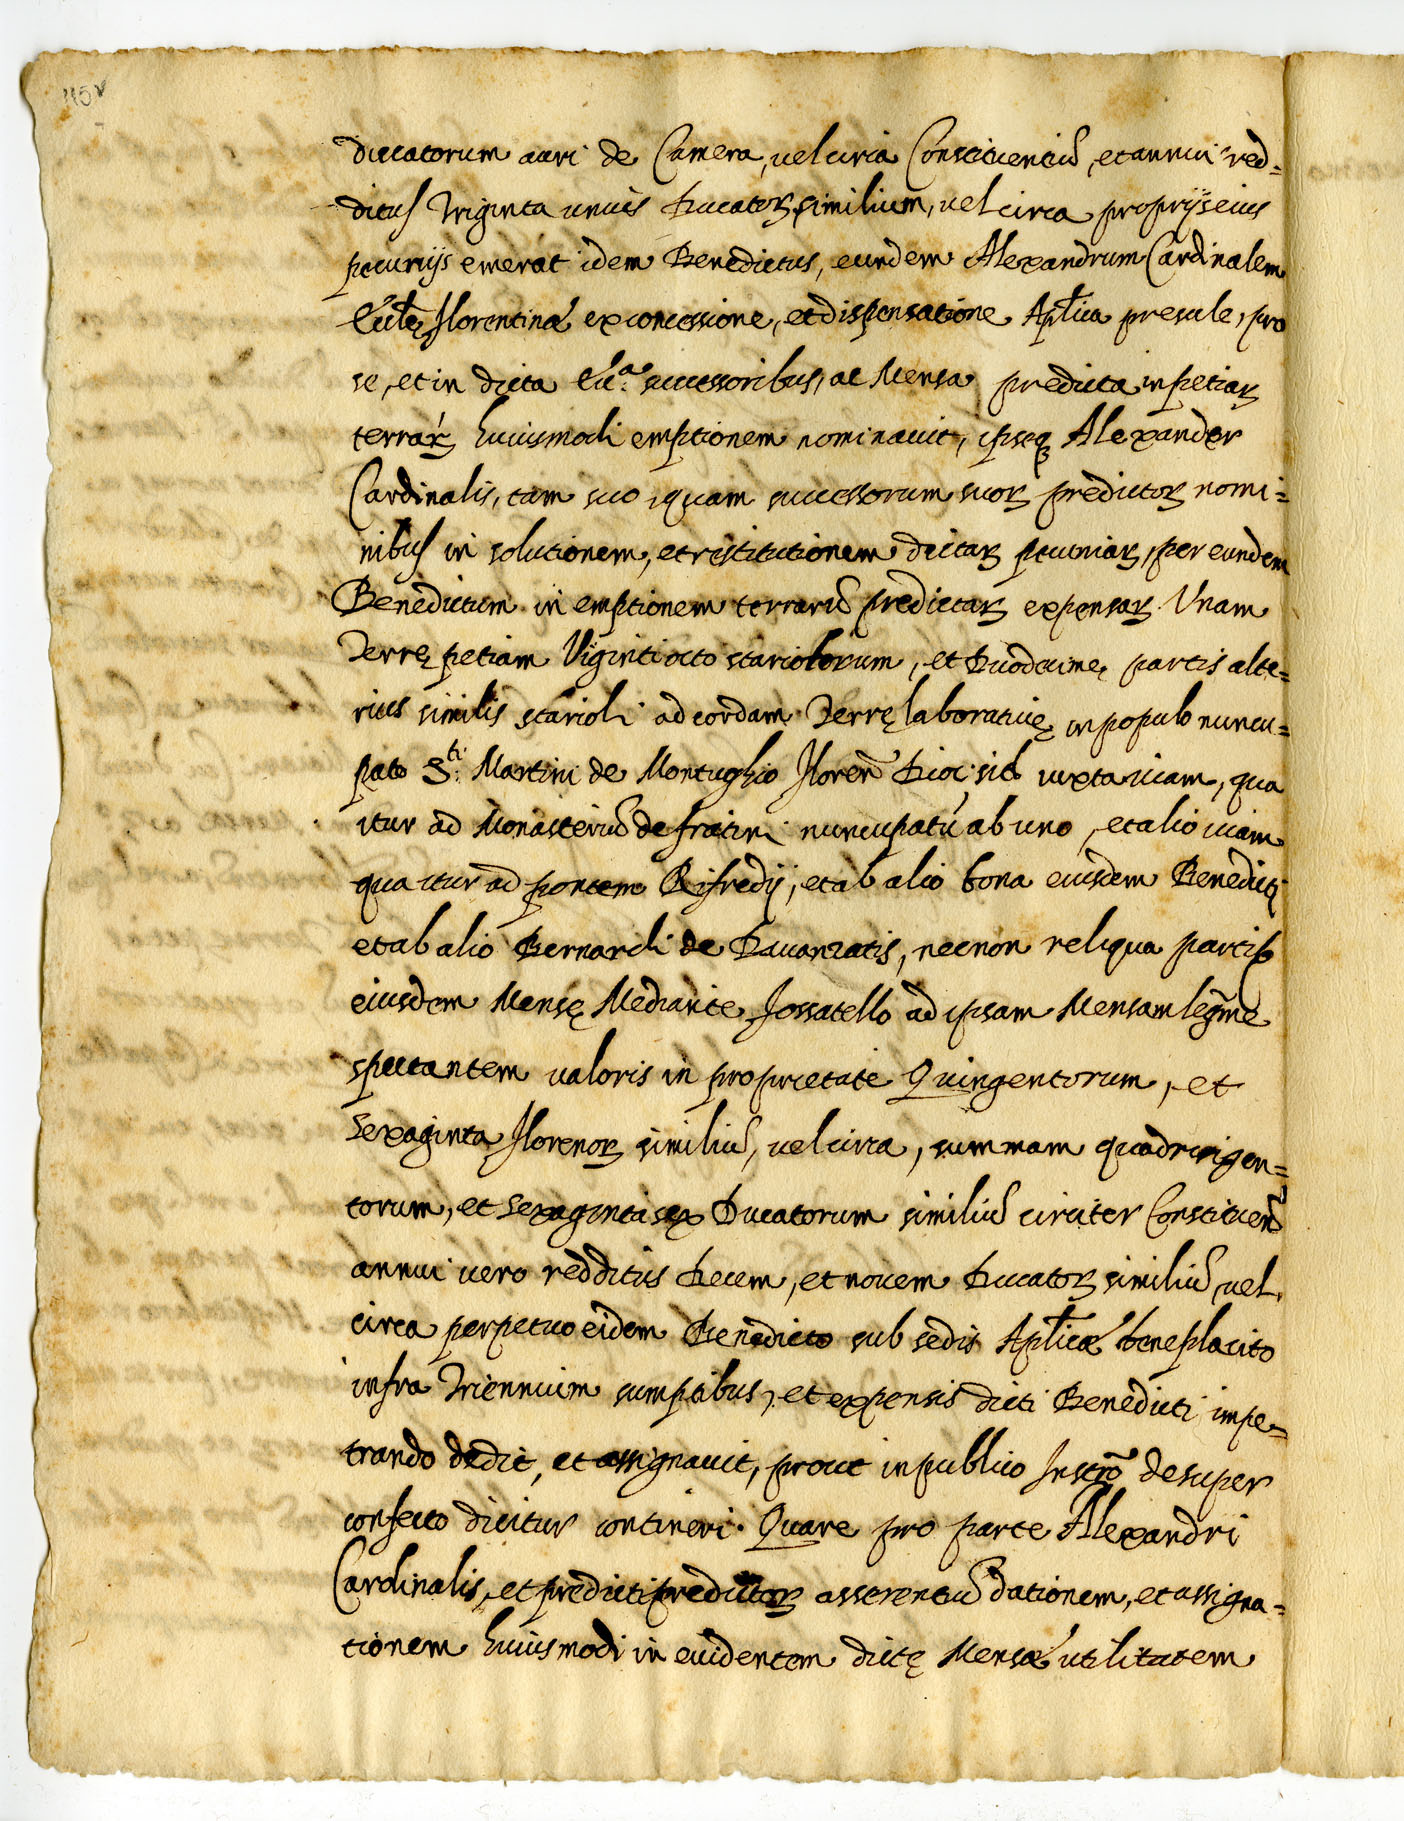 115v
ducatorum auri de Camera, vel circa Constituentiũ, et annui red=
ditus Triginta unius Ducatorꝝ similium, vel circa proprijs eius
pecunijs emerat idem Benedictus, eundem Alexandrum Cardinalem
Eccłę Florentinæ ex concessione, et dispensatione Aplica presule, pro
se, et in dicta Ecc.ª successoribus, ac Mensa predicta in petiarꝝ
terrarꝝ huiusmodi emptionem nominavit, ipseqȝ Alexander
Cardinalis, tam suo quam successorum suorꝝ predictorꝝ nomi=
nibus in solutionem, et restitutionem dictarꝝ pecuniarꝝ, per eundem
Benedictum in emptionem terrarũ predictarꝝ expensarꝝ. Unam
Terrę petiam Viginti octo stariolorum, et Duodecimę partis alte=
rius similis starioli ad cordam Terrę laborativę in populo nuncu=
pato S.ti Martini de Montughio Floren̄ Diocsis iuxta viam, qua
itur ad Monasteriũ de fratini nuncupatũ ab uno, et alio viam
qua itur ad pontem Rifredij, et ab alio bona eiusdem Benedicti
et ab alio Bernardi de Davanzatis, necnon reliqua partis
eiusdem Mensę Mediante Fossatello ad ipsam Mensam legm̃e
spectantem valoris in proprietate Quingentorum, et
sexaginta florenorꝝ similiũ, vel circa, summam quadringen=
torum, et sexaginta sex Ducatorum similiũ circiter Constituen̄
annui vero redditus Decem, et novem Ducatorꝝ similiũ, vel
circa perpetuo eidem Benedicto sub sedis Aplicæ beneplacito
infra Triennium sumptibus, et expensis dicti Benedicti impe=
trando dedit, et assignavit, prout in publico Instrõ desuper
confecto dicitur contineri. Quare pro parte Alexandri
Cardinalis, et predicti predictorꝝ asserentiũ dationem, et assigna=
tionem huiusmodi in evidentem dictę Mensæ utilitatem